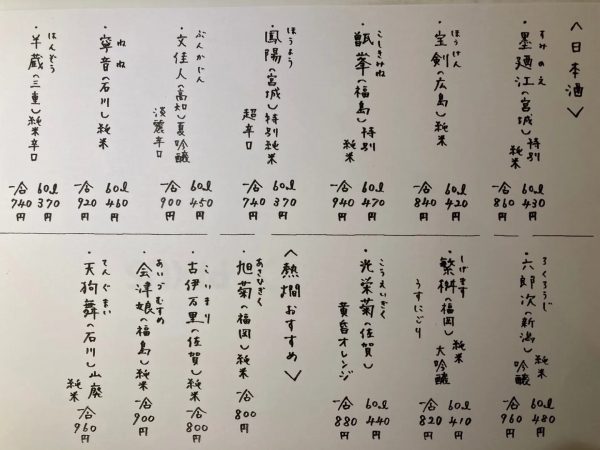 〈日本酒〉
すみのえ
・墨廼江(宮城)特別純米
60ℓ 430円
一合 860円
ほうけん
・宝剣(広島)純米
60ℓ 420円
一合 840円
こしきみね
・甑峯(福島)特別純米
60ℓ 470円
一合 940円
ほうよう
・鳳陽(宮城)特別純米
超辛口
60ℓ 370円
一合 740円
ぶんかじん
・文佳人(高知)夏吟醸
淡麗辛口
60ℓ 450円
一合 900円
ねね
・寧音(石川)純米
60ℓ 460円
一合 920円
はんぞう
・半蔵(三重)純米辛口
60ℓ 370円
一合 740円
ろくろうじ
・六郎次(新潟)純米吟醸
60ℓ 480円
一合 960円
しげます
・繁桝(福岡)純米大吟醸
うすにごり
60ℓ 410円
一合 820円
こうえいぎく
・光栄菊(佐賀)
黄昏オレンジ
60ℓ 440円
一合 880円
〈熱燗おすすめ〉
あさひぎく
・旭菊(福岡)純米 一合800円
こいまり
・古伊万里(佐賀)純米 一合800円
あいづむすめ
・会津娘(福島)純米 一合900円
てんぐまい
・天狗舞(石川)山廃純米 一合960円